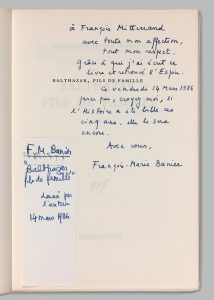 à François Mitterrand
avec toute mon affection,
tout mon respect.
Grâce à qui j'ai écrit ce
livre et retrouvé l'Espoir.
BALTHAZAR, FILS DE FAMILLE
Ce vendredi 14 Mars 1986
parce que, croyez moi, si
l'Histoire a été belle ces
cinq ans, elle le sera
encore.
Avec vous,
François-Marie Banier
F.M. Banier
Balthazar
fils de famille
donné par
l'auteur
14 mars 1986
nrf
GALLIMARD